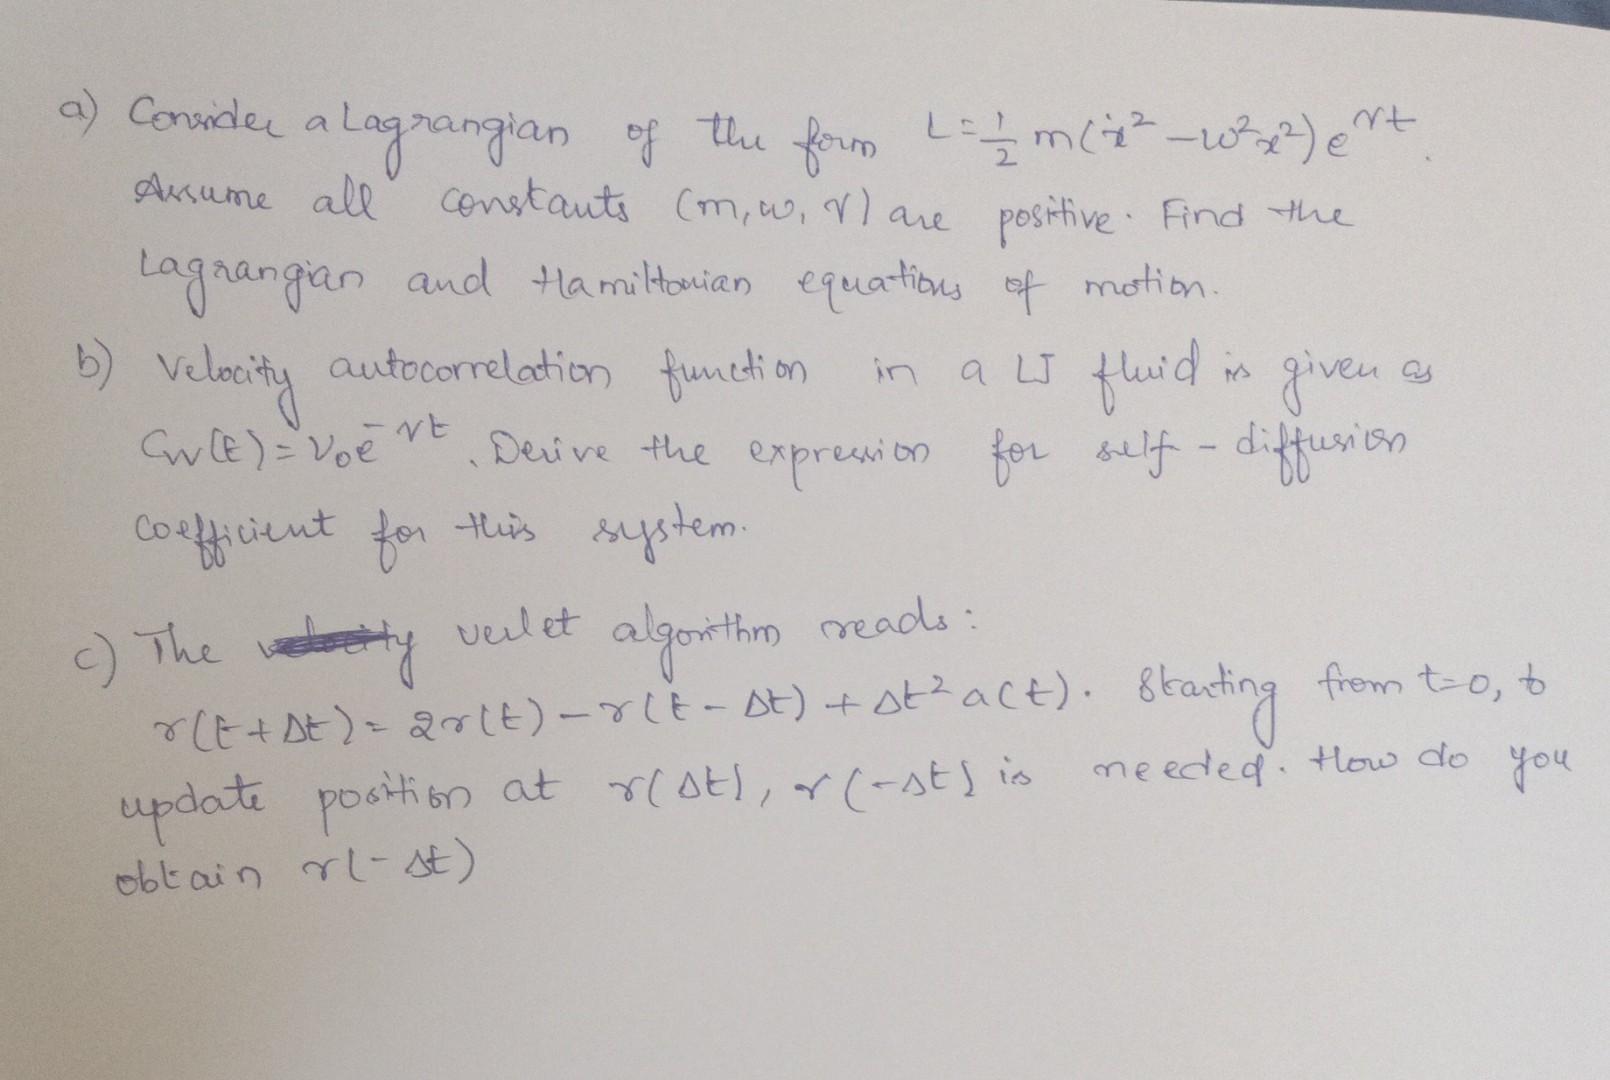 a) Consider a Lagrangian of the form L = 1/2 m(ẋ² - ω²x²) e^γt.
Assume all constants (m, ω, γ) are positive. Find the
Lagrangian and Hamiltonian equations of motion.
b) Velocity autocorrelation function in a LJ fluid is given as
Cvv(t) = v₀e^-γt. Derive the expression for self-diffusion
coefficient for this system.
c) The verlet algorithm reads:
r(t+Δt) = 2r(t) - r(t-Δt) + Δt² a(t). Starting from t=0, to
update position at r(Δt), r(-Δt) is needed. How do you
obtain r(-Δt)